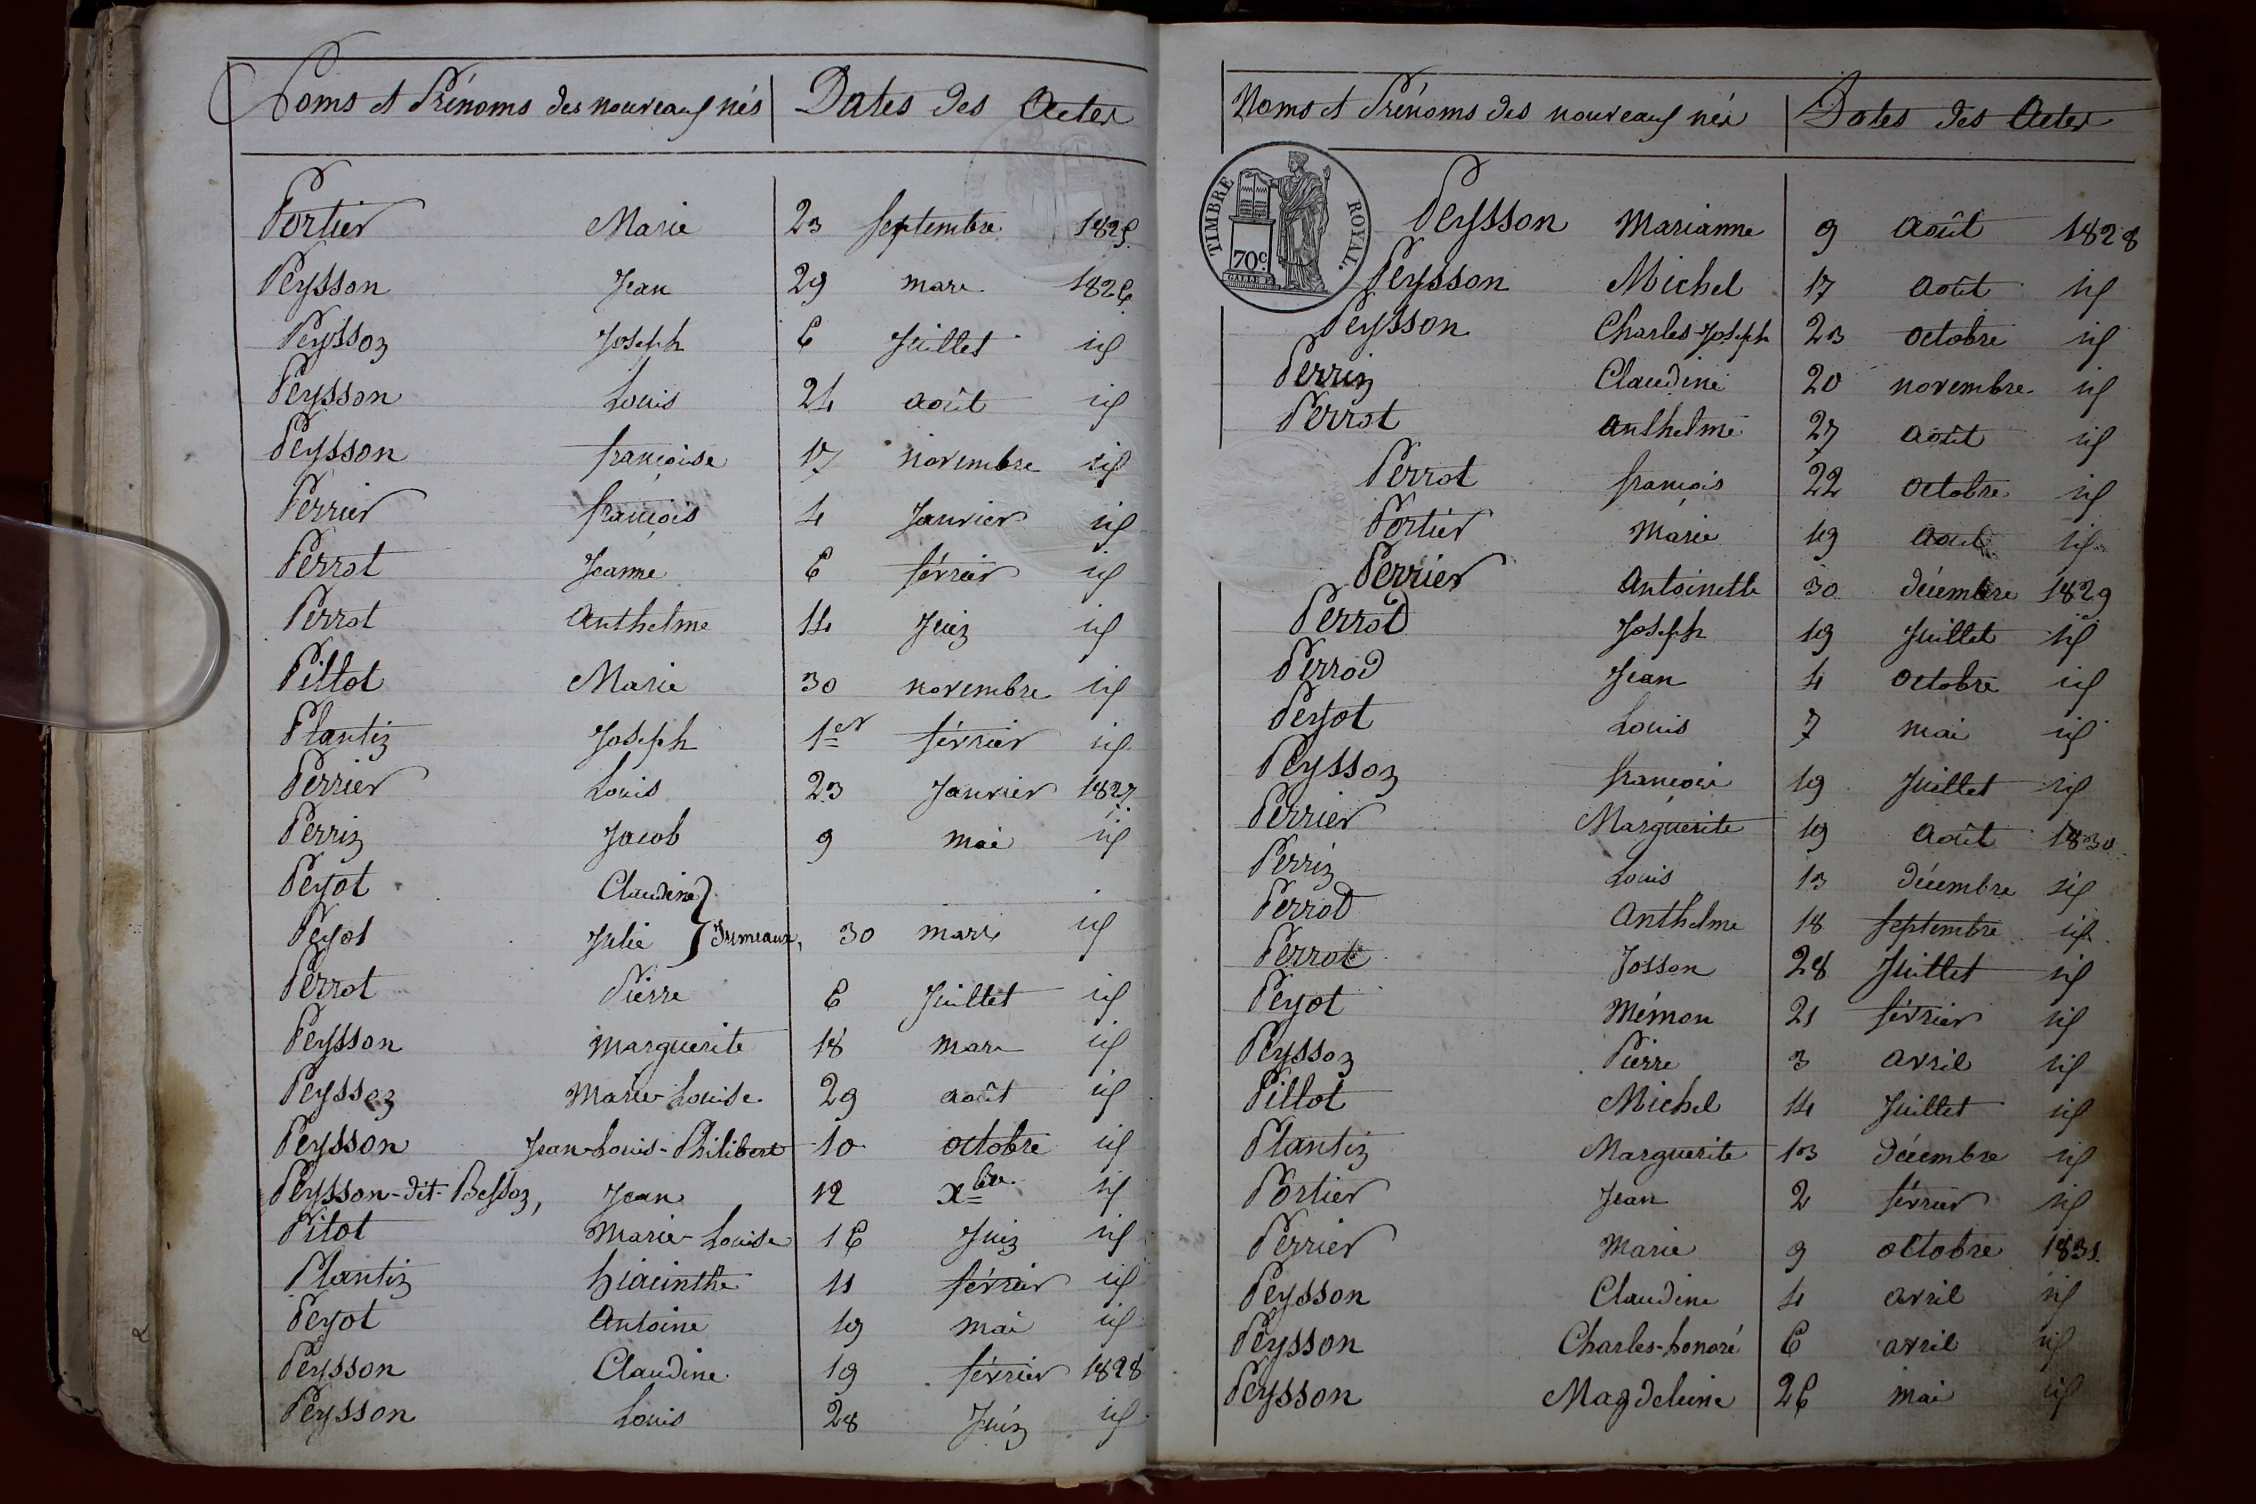 Noms et Prénoms des nouveaux nés | Dates des Actes
Portier Marie 23 septembre 1825.
Peysson Jean 29 mars 1826.
Peysson Joseph 6 Juillet id
Peysson Louis 24 août id
Peysson françoise 17 novembre id
Perrier françois 4 Janvier id
Perrot Jeanne 6 février id
Perrot Anthelme 14 Juin id
Pillot Marie 30 novembre id
Plantin Joseph 1er février id
Perrier Louis 23 Janvier 1827
Perrin Jacob 9 mai id
Peyot Claudine
Peyot Julie } Jumeaux, 30 mars id
Perrot Pierre 6 Juillet id
Peysson Marguerite 18 mars id
Peysson Marie-Louise 29 août id
Peysson Jean-Louis-Philibert 10 octobre id
Peysson-dit-Besson, Jean 12 Xbre id
Pilot Marie-Louise 16 Juin id
Plantin hiacinthe 11 février id
Peyot Antoine 19 mai id
Peysson Claudine 19 février 1828
Peysson Louis 28 Juin id
Noms et Prénoms des nouveaux nés | Dates des Actes
TIMBRE ROYAL.
70c.
Peysson Marianne 9 Août 1828
Peysson Michel 17 Août id
Peysson Charles-Joseph 23 octobre id
Perrin Claudine 20 novembre id
Perrot Anthelme 27 Août id
Perrot françois 22 octobre id
Portier Marie 19 Août id
Perrier Antoinette 30 décembre 1829
Perrod Joseph 19 Juillet id
Perrod Jean 4 octobre id
Peyot Louis 7 mai id
Peysson françois 19 Juillet id
Perrier Marguerite 19 Août 1830
Perrin Louis 13 décembre id
Perrod Anthelme 18 septembre id
Perrot Josson 28 Juillet id
Peyot Mémon 21 février id
Peysson Pierre 3 avril id
Pillot Michel 14 Juillet id
Plantin Marguerite 13 décembre id
Portier Jean 2 février id
Perrier Marie 9 octobre 1831.
Peysson Claudine 4 avril id
Peysson Charles-honoré 6 avril id
Peysson Magdeleine 26 mai id